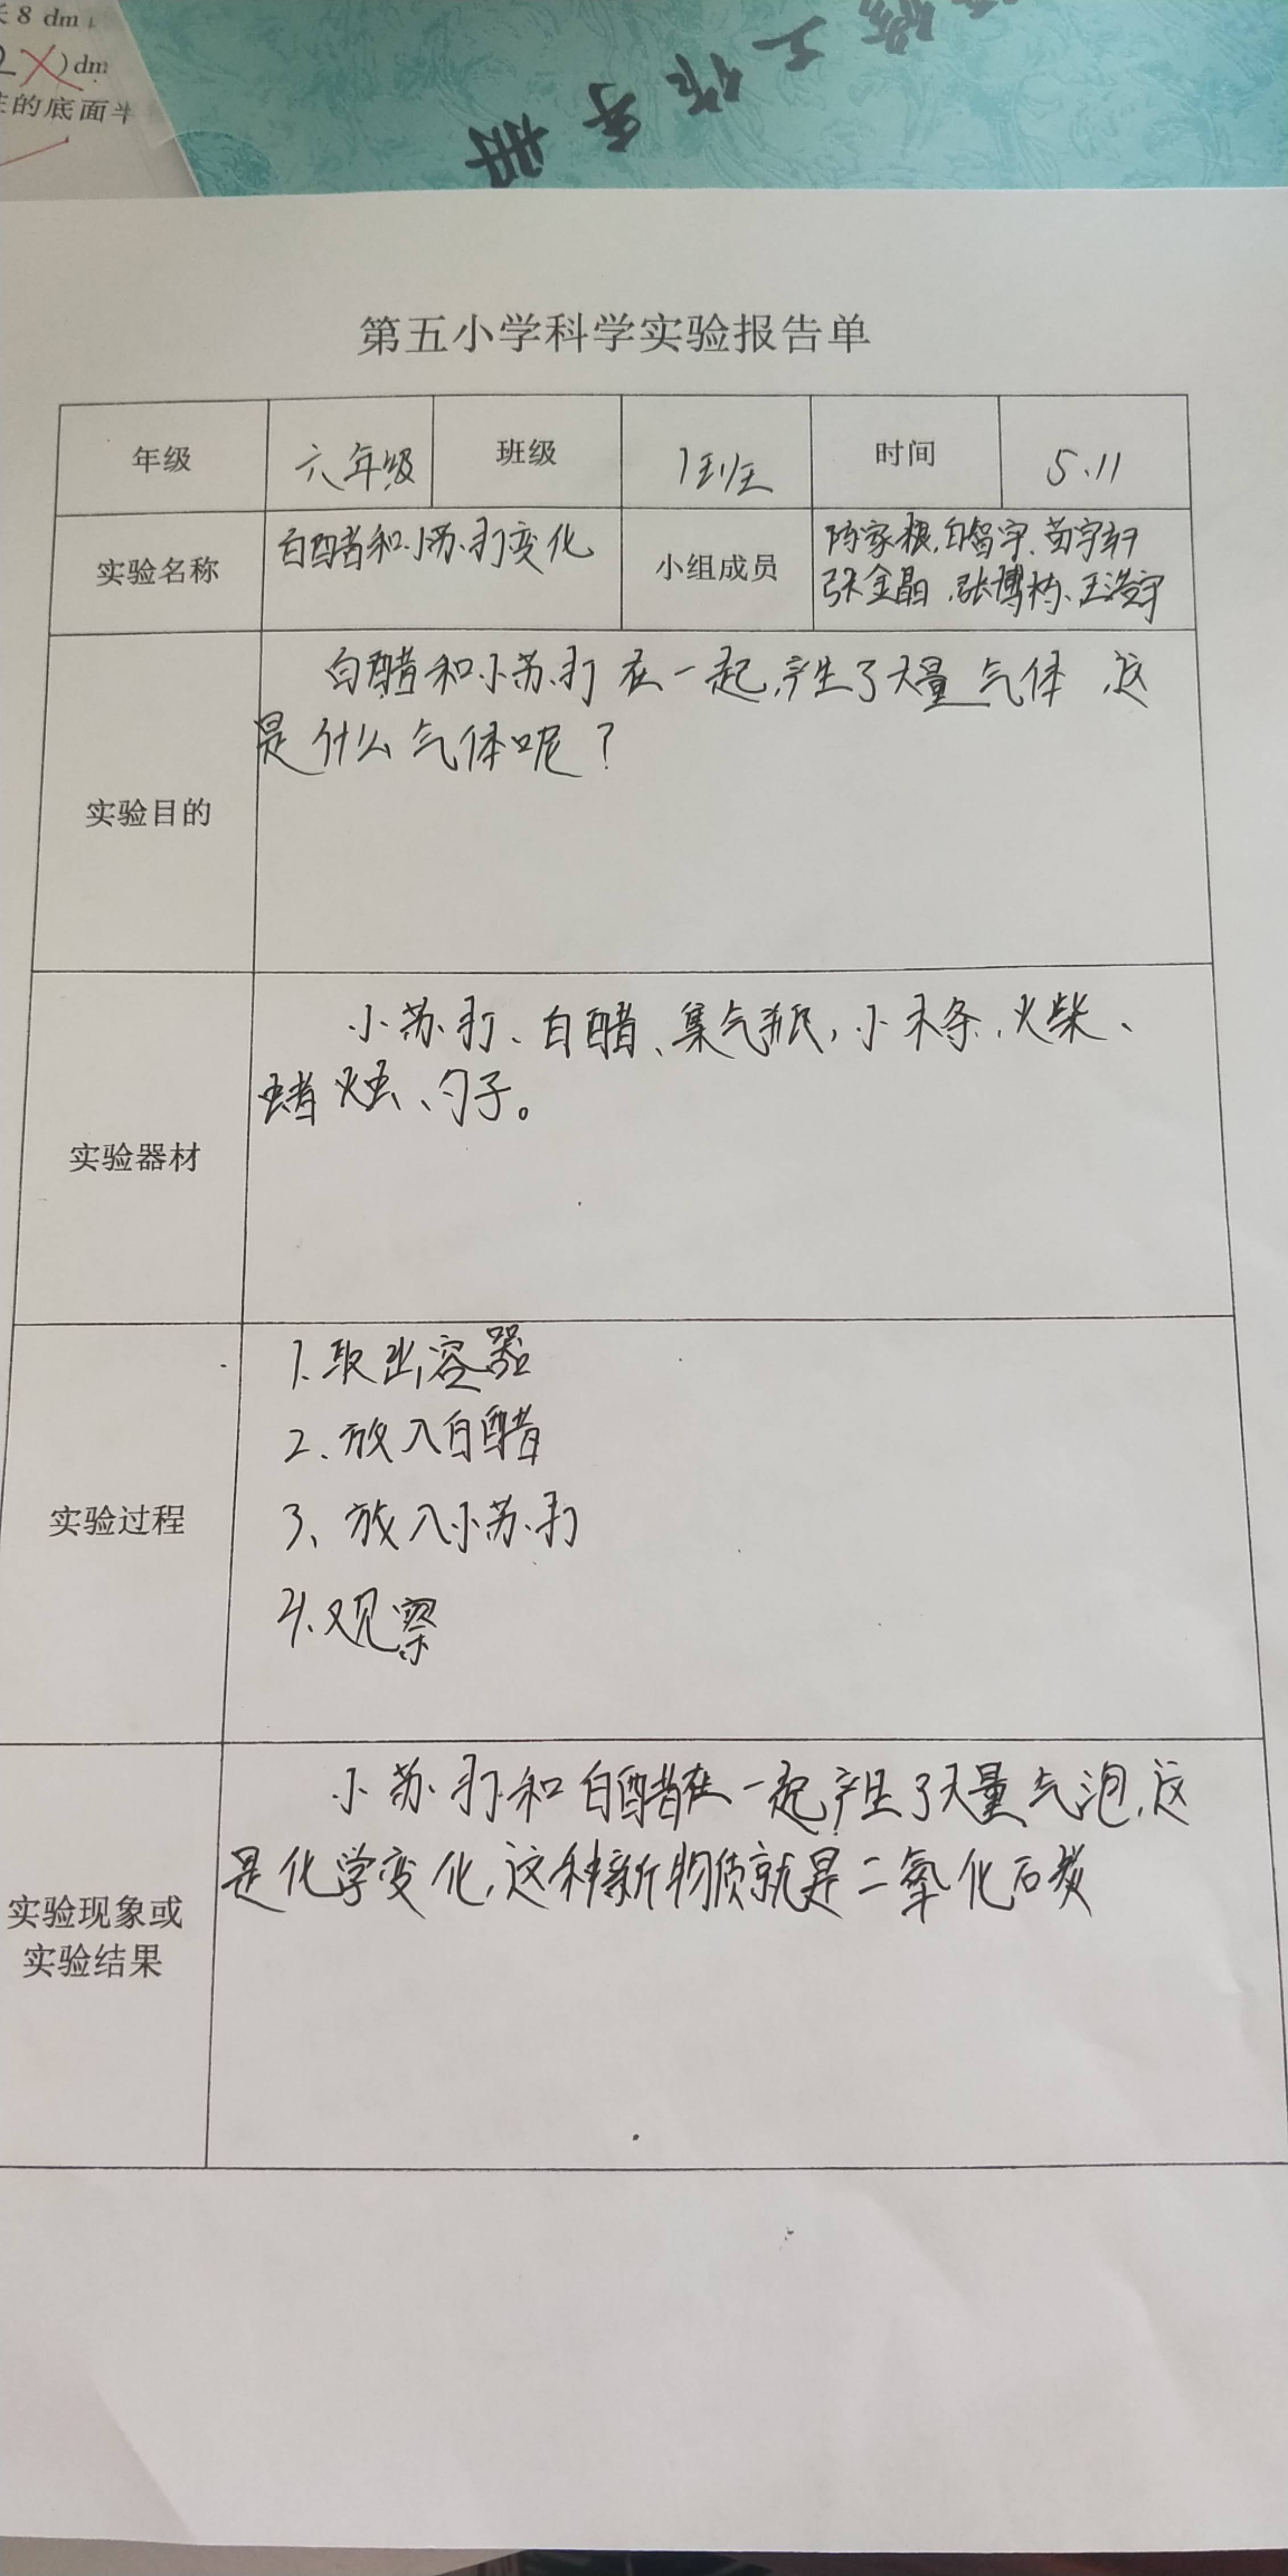 长 8 dm
2 ) dm
的底面半
工作手册
第五小学科学实验报告单
年级 六年级 班级 1班 时间 5.11
实验名称 白醋和小苏打变化 小组成员 陈家根、白智宇、苗宇轩
张金晶、张博栋、王浩宇
白醋和小苏打在一起,产生了大量气体,这
是什么气体呢?
实验目的
小苏打、白醋、集气瓶,小木条,火柴、
蜡烛、勺子。
实验器材
1.取出容器
2、放入白醋
3、放入小苏打
4.观察
实验过程
小苏打和白醋在一起产生了大量气泡,这
是化学变化,这种新物质就是二氧化碳
实验现象或
实验结果